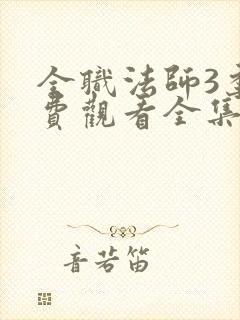 全職法師3
費觀看全集
音若笛